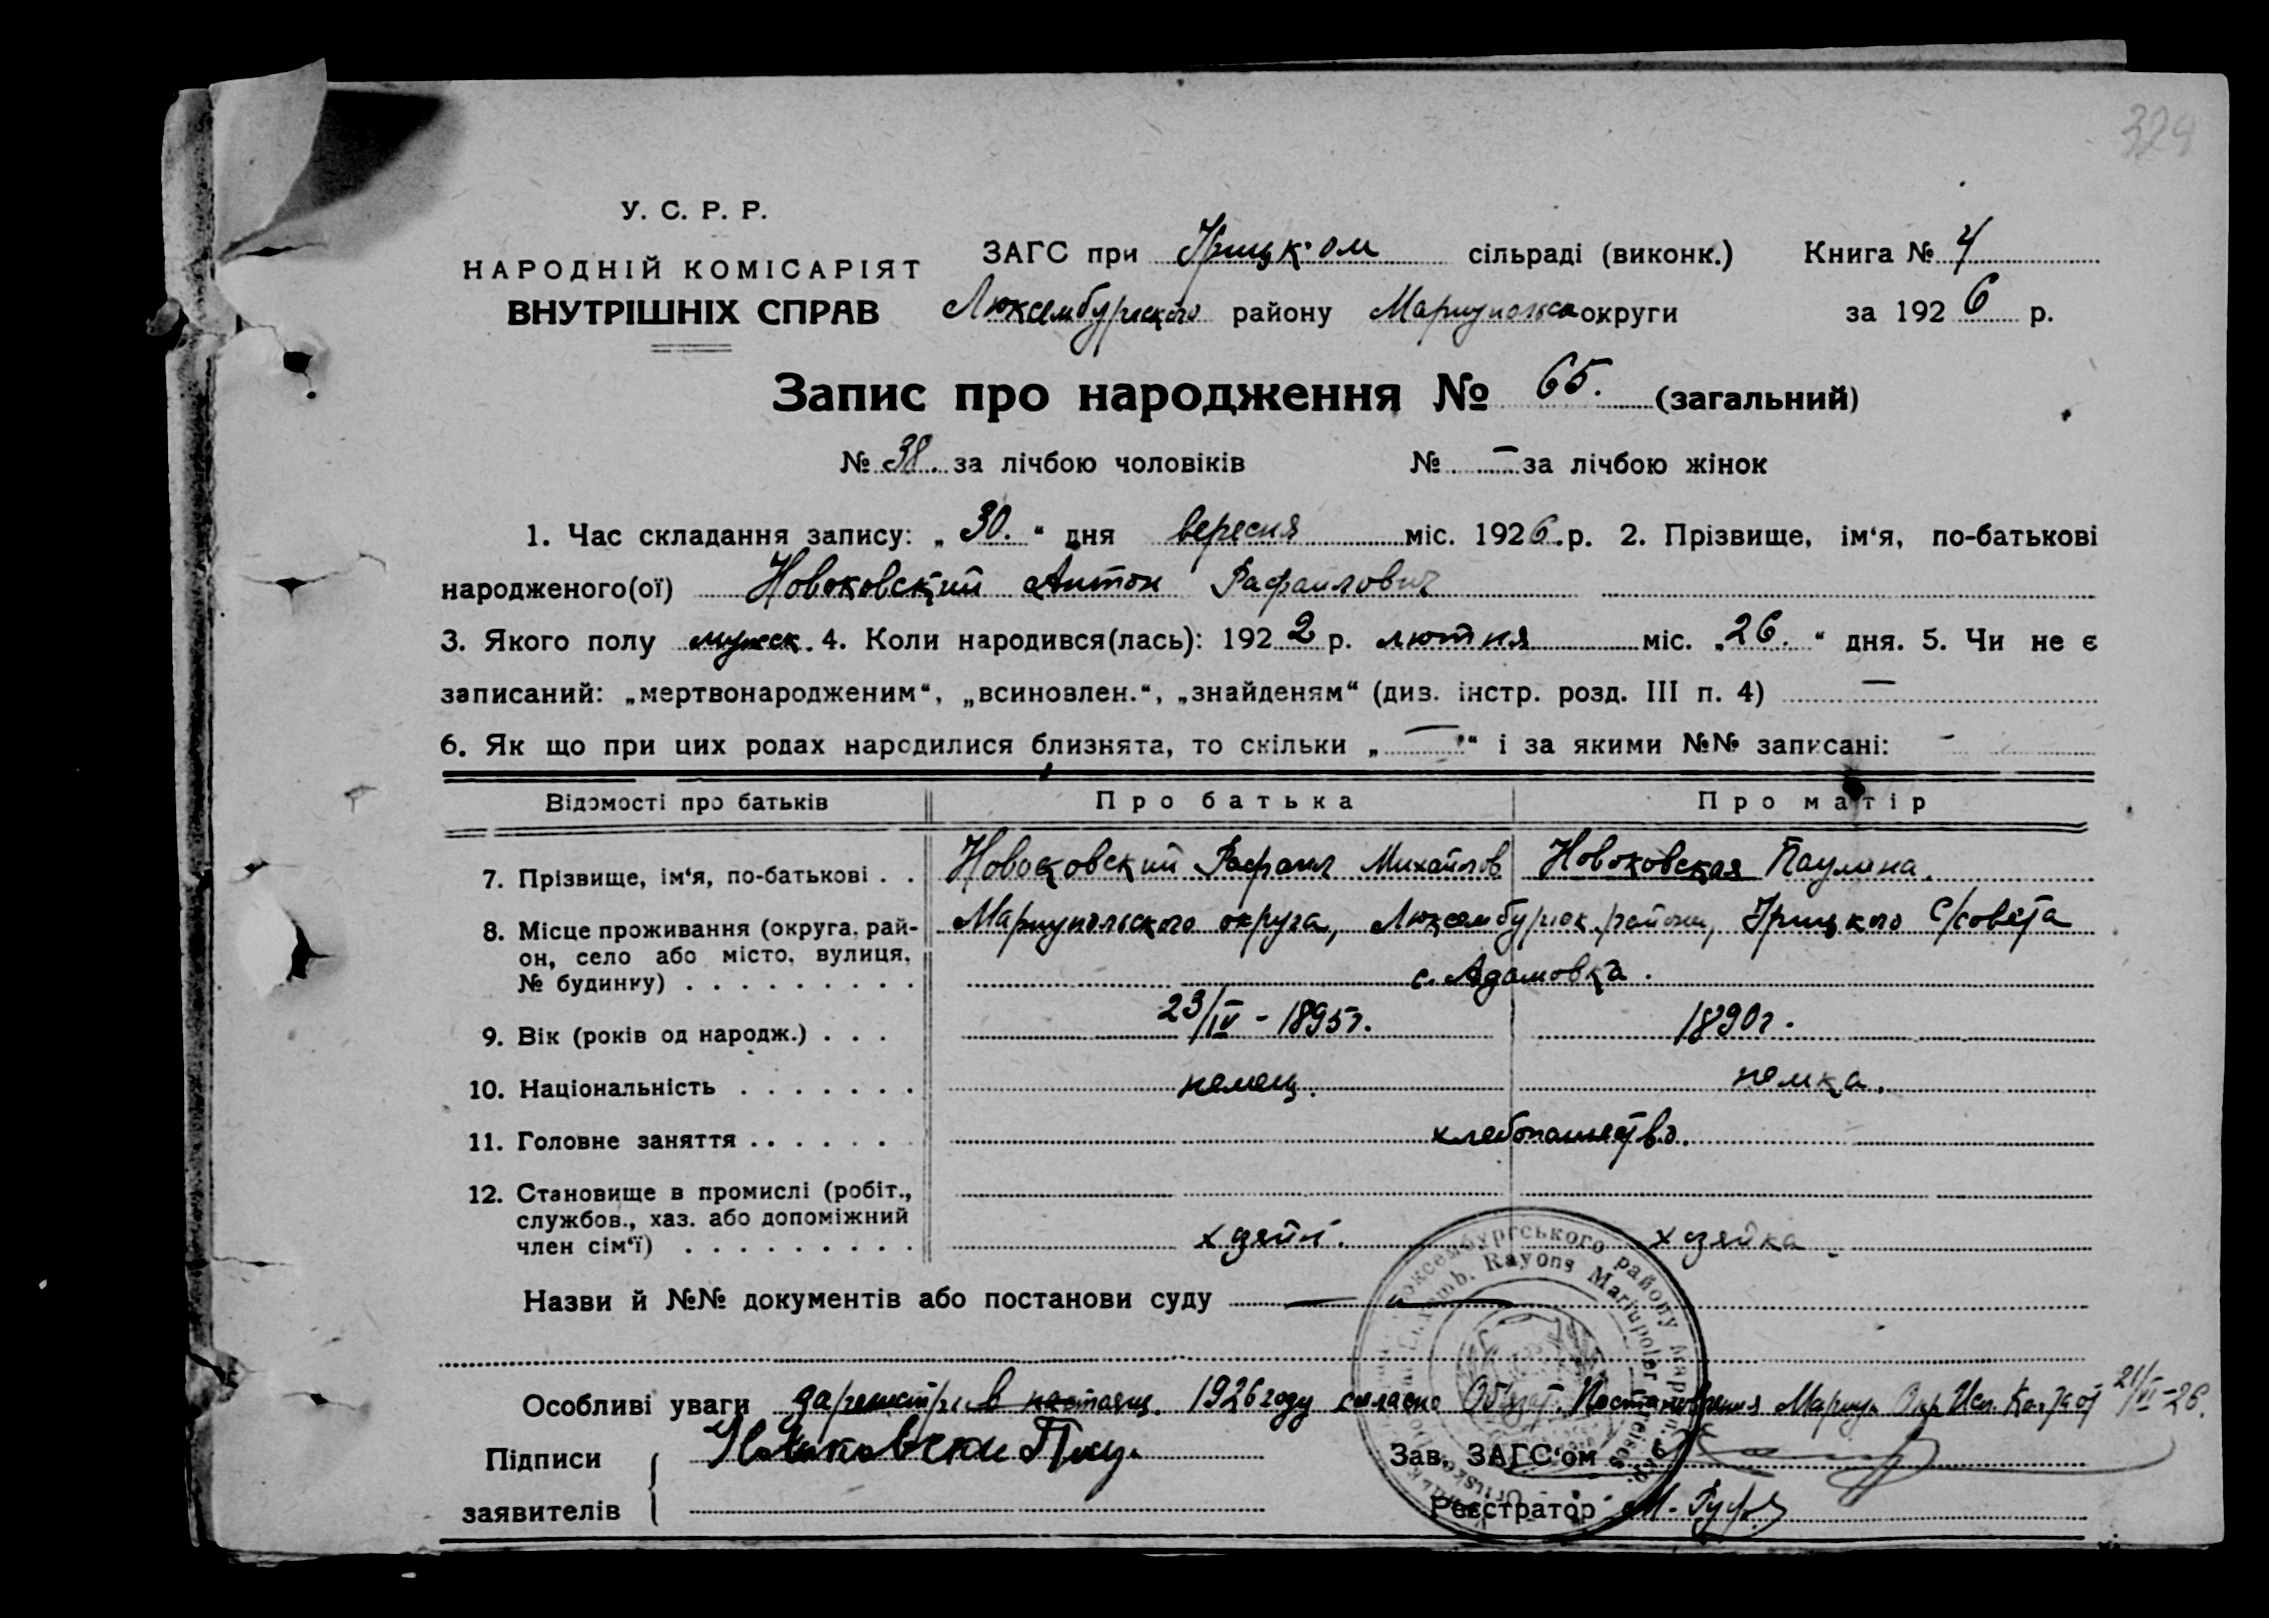 329
У. С. Р. Р.
НАРОДНІЙ КОМІСАРІЯТ
ВНУТРІШНІХ СПРАВ
ЗАГС при сільраді (виконк.) Книга № 4
Люксембургского району Мариупольск округи за 192 6 р.
Запис про народження № 65. (загальний)
№ 38. за лічбою чоловіків № — за лічбою жінок
1. Час складання запису: „ 30. “ дня вересня міс. 1926.р. 2. Прізвище, ім‘я, по-батькові
народженого(ої) Новоковский Антон Рафаилович
3. Якого полу мужск. 4. Коли народився(лась): 192 2 р. лютня міс. „ 26. “ дня. 5. Чи не є
записаний: „мертвонародженим“, „всиновлен.“, „знайденям“ (див. інстр. розд. III п. 4) —
6. Як що при цих родах народилися близнята, то скільки „ — “ і за якими №№ записані: -
Відомості про батьків Про батька Про матір
7. Прізвище, ім‘я, по-батькові . . Новоковский Рафаил Михайлов Новоковская Паулина.
8. Місце проживання (округа, рай- Мариупольского округа, Люксембургск. района, С/совета
он, село або місто, вулиця, с. Адамовка.
№ будинку) . . . . . . . . .
9. Вік (років од народж.) . . . 23/IV - 1895г. 1890г.
10. Національність . . . . . . . немец. немка.
11. Головне заняття . . . . . . хлебопашество.
12. Становище в промислі (робіт.,
службов., хаз. або допоміжний
член сім‘ї) . . . . . . . . . хзяйка
Назви й №№ документів або постанови суду
Особливі уваги 1926 году согласно Обязат. Постановления Мариуп. Окр. Исп. Ком. от 21/VI-26.
Підписи
заявителів
Зав. ЗАГС‘ом
Реєстратор М.
Люксембургського району Маріюп.
Rayons Mariupoler Kreises